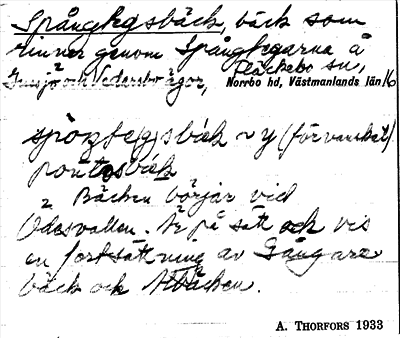 Spångtegsbäck, bäck som
rinner genom Spångtegarna å
Fläckebo sn,
Gussjö och Vedersbo ägor, Norrbo hd, Västmanlands län 16
spòŋteg̀sbäk ~ y (förvanskat)
pontesbäk
2 Bäcken börjar vid
Odensvallen. Är på sätt och vis
en fortsättning av Gångare
bäck och Abäcken.
A. THORFORS 1933